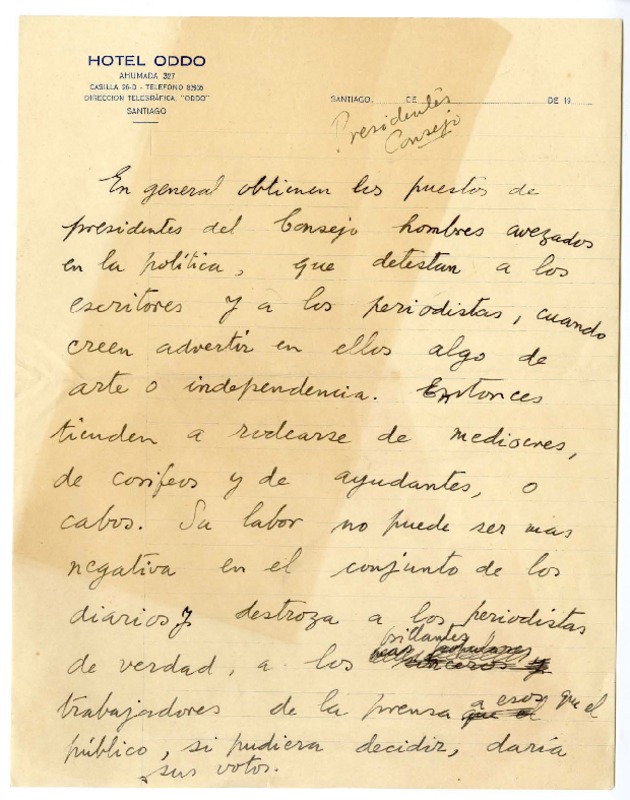 HOTEL ODDO
AHUMADA 327
CASILLA 26-D - TELEFONO 83935
DIRECCION TELEGRÁFICA: "ODDO"
SANTIAGO
SANTIAGO, DE DE 19
Presidentes
Consejo
En general obtienen los puestos de
presidentes del Consejo hombres avezados
en la política, que detestan a los
escritores y a los periodistas, cuando
creen advertir en ellos algo de
arte o independencia. Entonces
tienden a rodearse de mediocres,
de corifeos y de ayudantes, o
cabos. Su labor no puede ser mas
negativa en el conjunto de los
diarios y destroza a los periodistas
brillantes
mas populares
de verdad, a los sinceros y
trabajadores de la prensa que el a esos que el
público, si pudiera decidir, daría
sus votos.